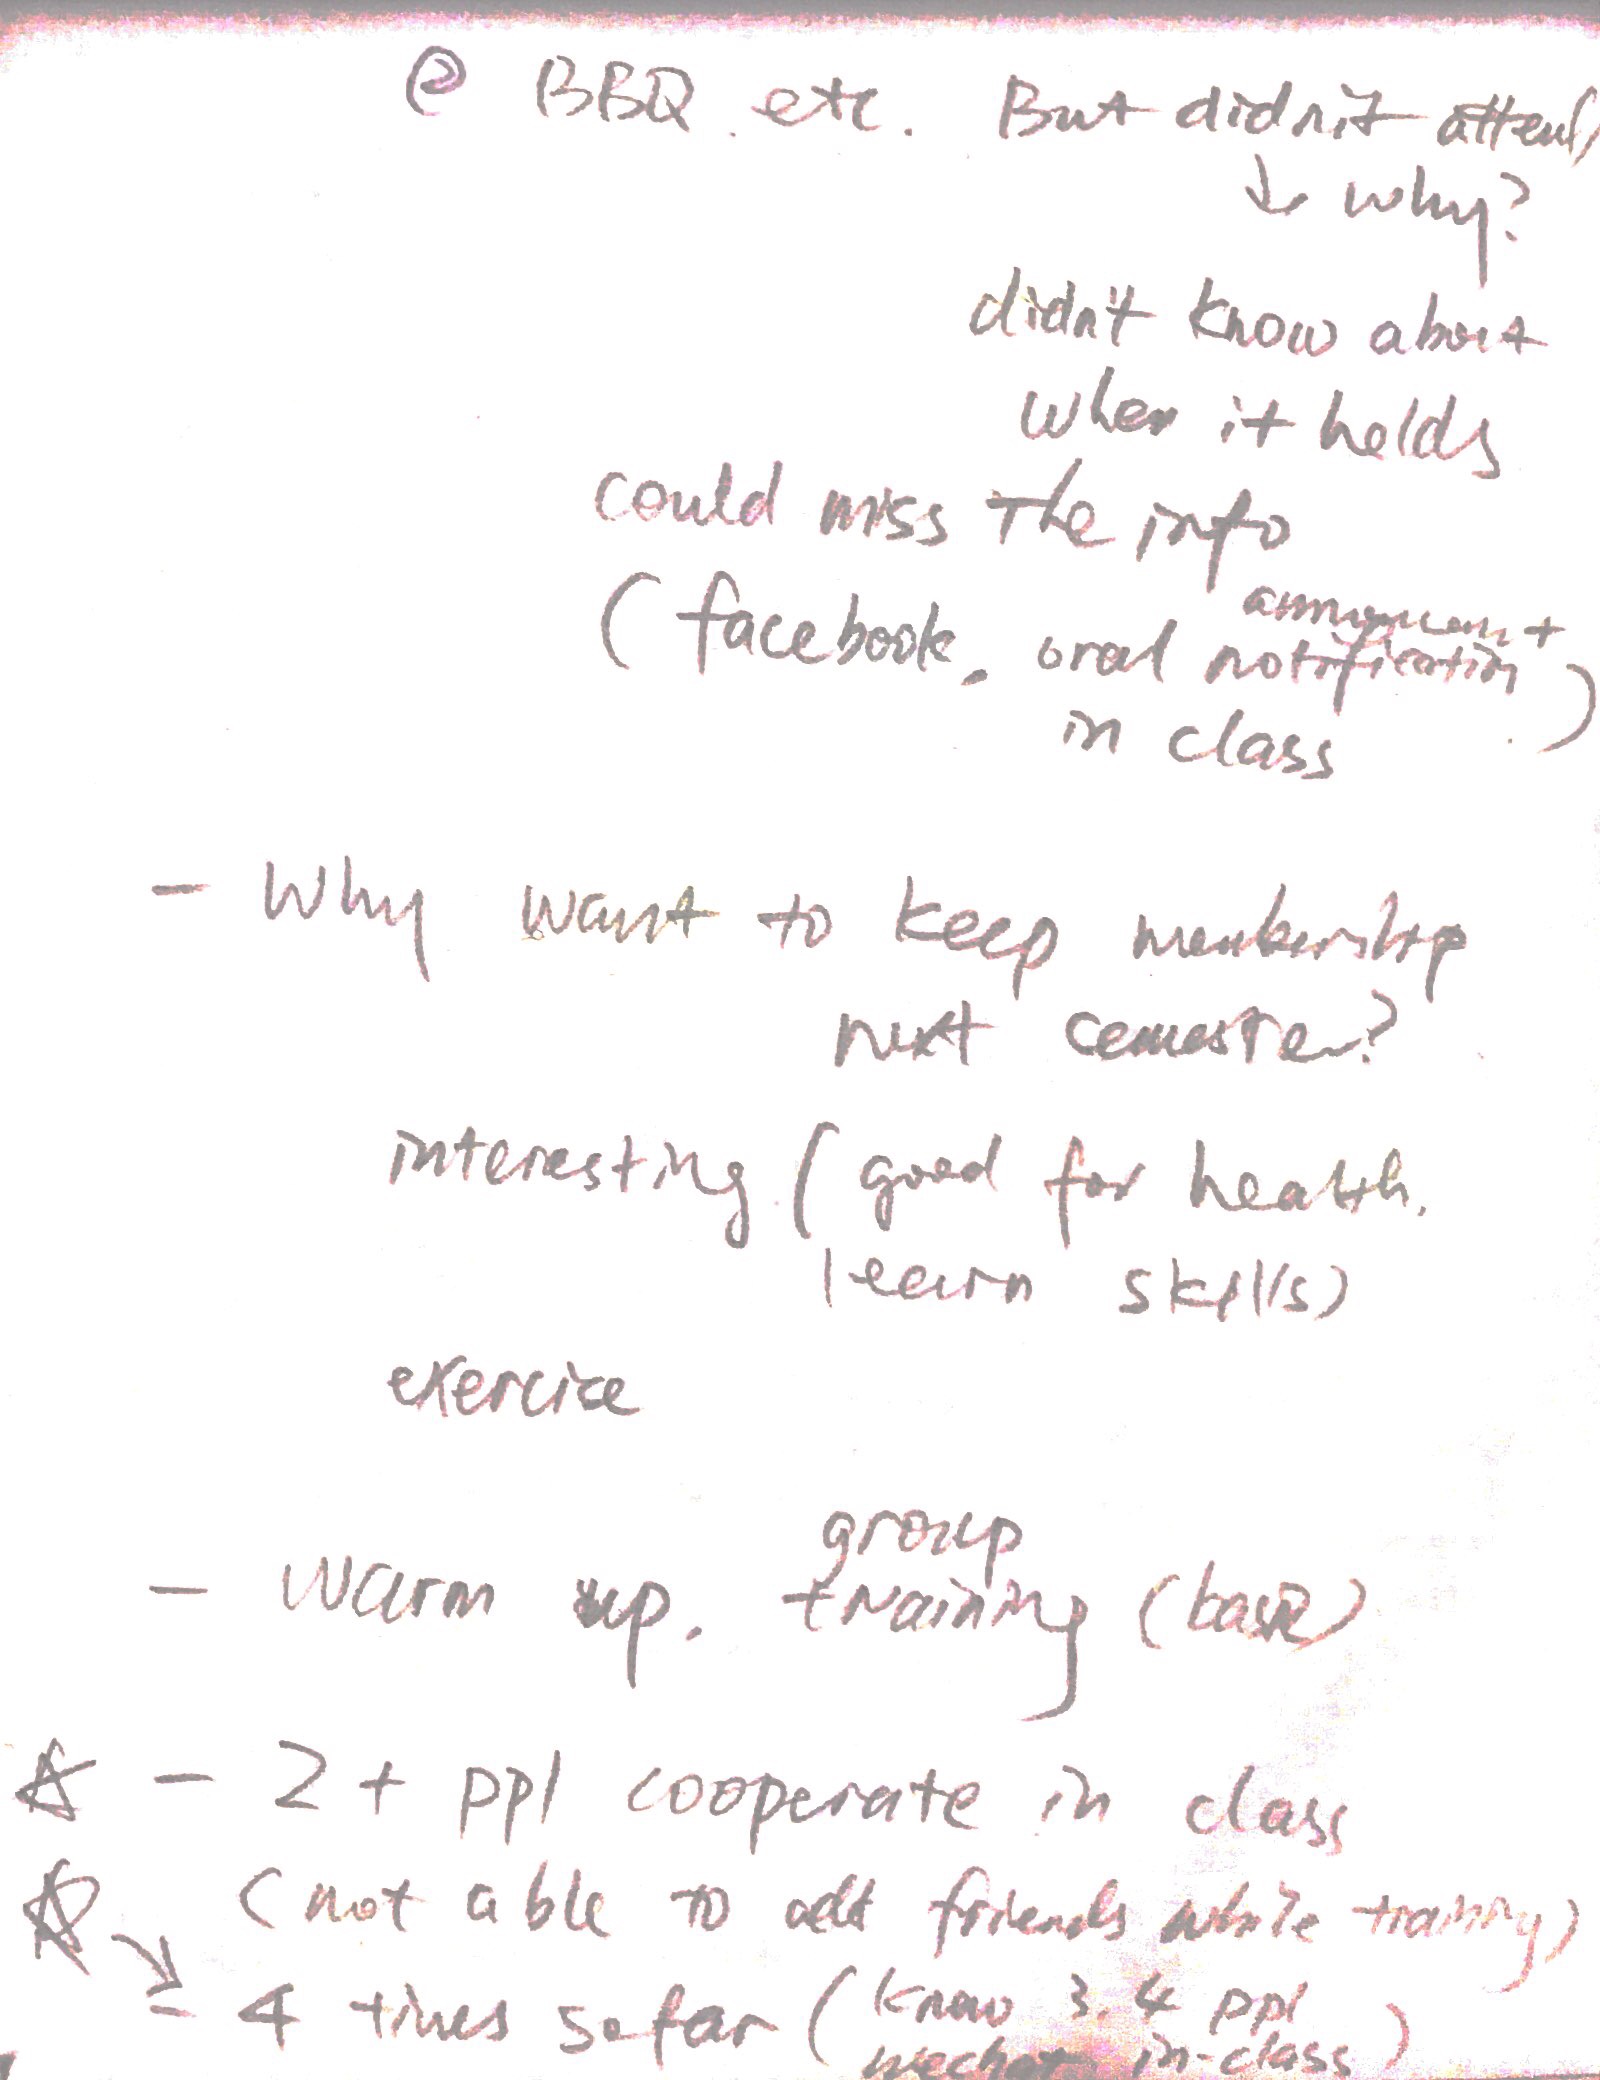 ② BBQ. etc. But didn't attend
↓ why?
didn't know about
when it holds
could miss the info
announcement
(facebook. oral notification
in class)
- Why want to keep membership
next cemester?
interesting (good for health.
learn skills)
exercise
group
- Warm up. training (basic)
☆ - 2+ ppl cooperate in class
☆ (not able to add friends while training)
↘ - 4 times so far (know 3.4 ppl
wechat in-class)